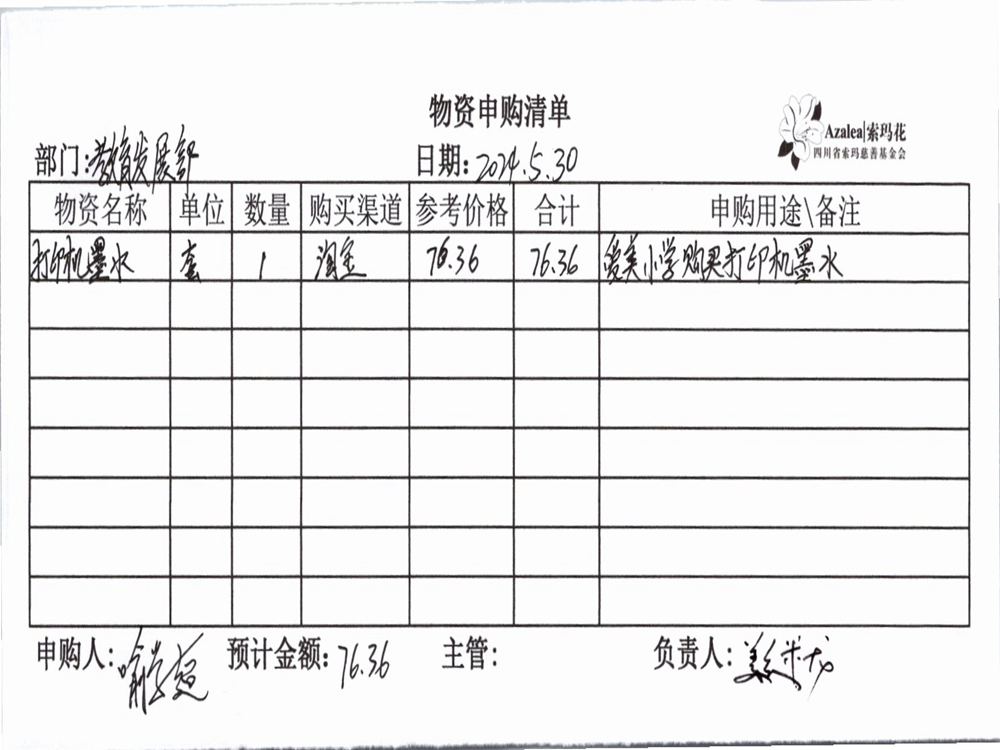 物资申购清单
Azalea|索玛花
四川省索玛慈善基金会
部门:教育发展部 日期:2024.5.30
物资名称 单位 数量 购买渠道 参考价格 合计 申购用途\备注
打印机墨水 套 1 淘宝 76.36 76.36 爱美小学购买打印机墨水
申购人: 预计金额:76.36 主管: 负责人: